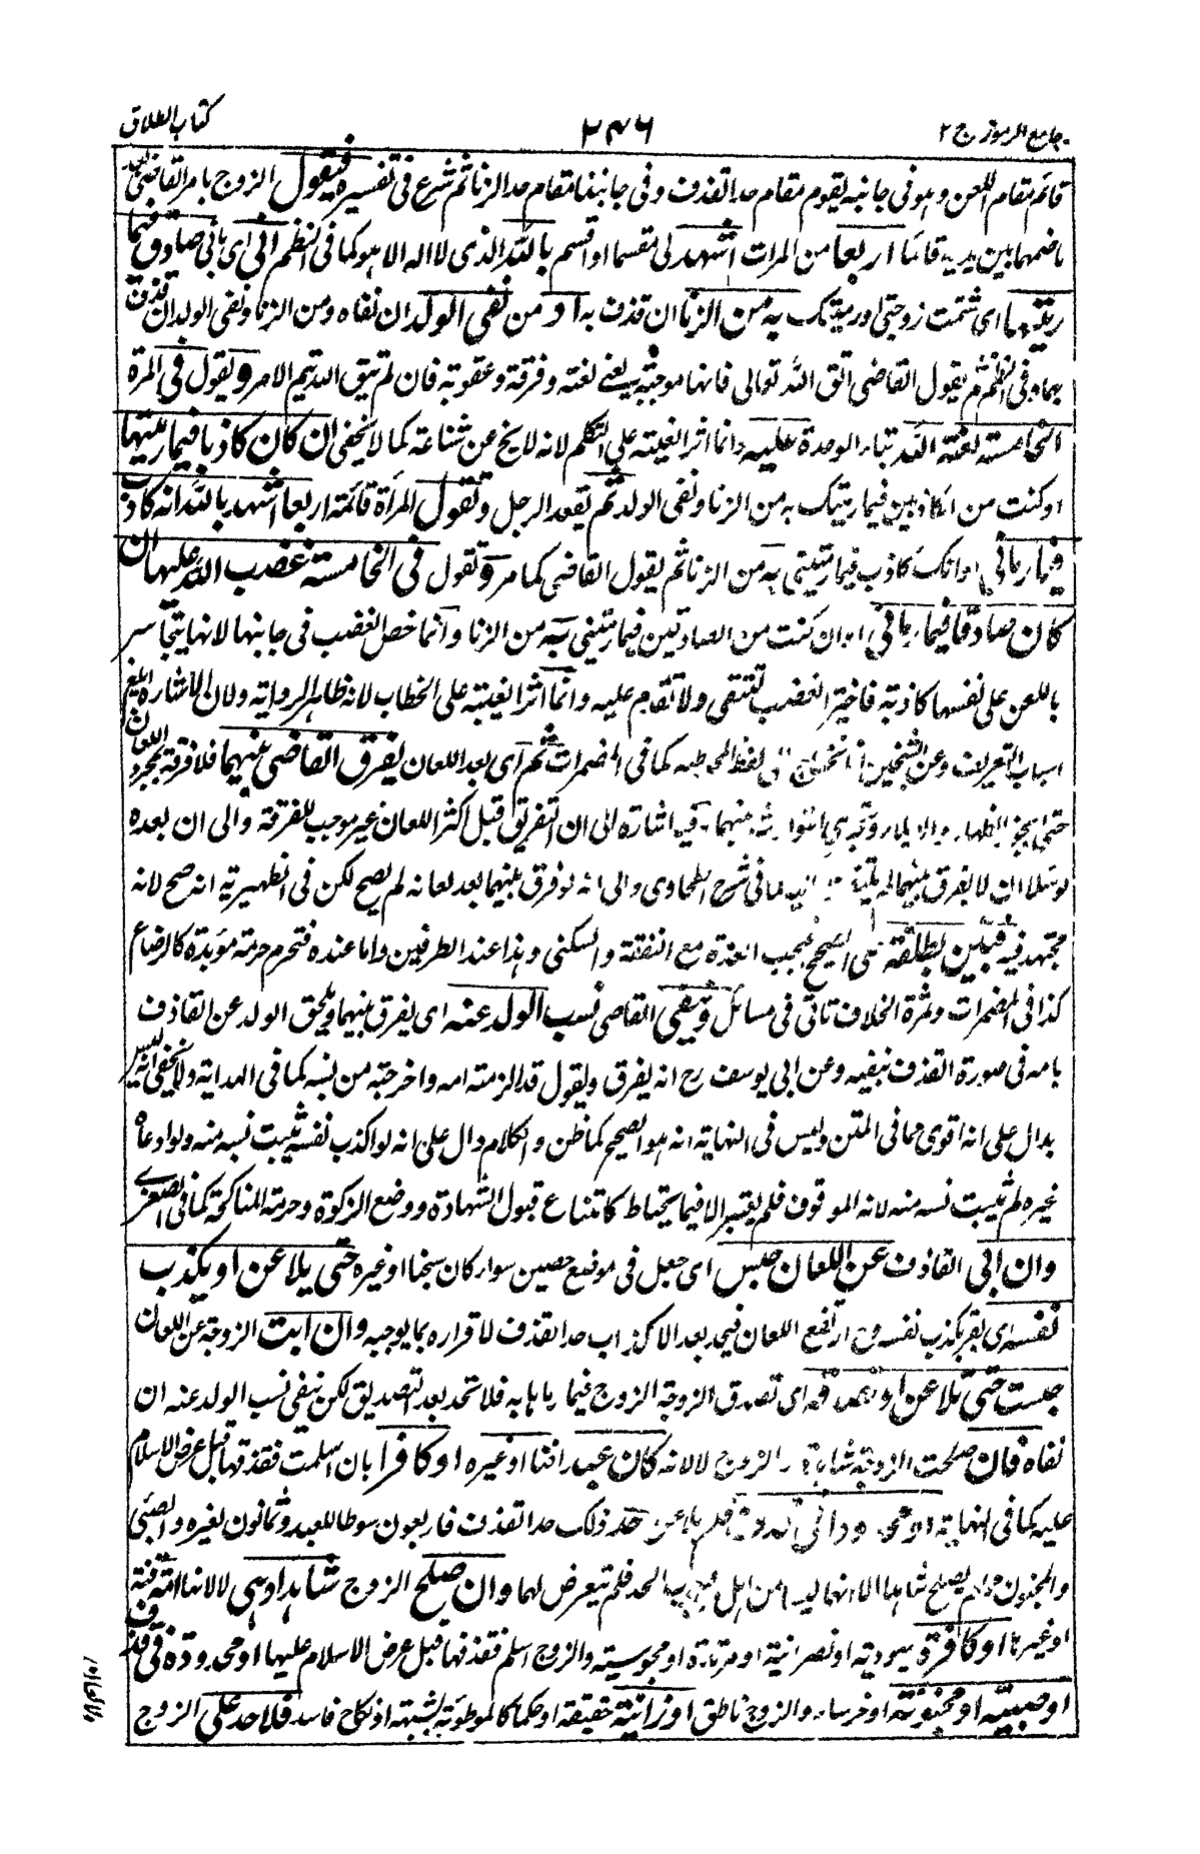 جامع الرموز ج ٢ ٣٤٦ كتاب الطلاق
قائم مقام اللعن وهو فى جانبه يقوم مقام حد القذف وفى جانبها مقام حد الزنا ثم شرع فى تفسيره فيقول الزوج بامر القاضى
باضمهما بين يديه قائما اربعا من المرات اشهد لى مقسما او اقسم بالله الذى لا اله الا هو كما فى النظم انى اى بانى صادق فيما
رميتها اى شتمت زوجتى او رميتك به من الزنا ان قذف به او من نفى الولد ان نفاه ومن الزنا ونفى الولد ان قذف
بهما وفى النظم ثم يقول القاضى اتق الله تعالى فانها موجبة يعنى لعنة وفرقة وعقوبة فان لم يتق الله يتم الامر ويقول فى المرة
الخامسة لعنة الله بتاء الوحدة عليه وانما اثر الغيبة على التكلم لانه لا يخ عن شناعة كما لا يخفى ان كان كاذبا فيما رميتها
او كنت من الكاذبين فيما رميتك به من الزنا ونفى الولد ثم يقعد الرجل وتقول المرأة قائمة اربعا اشهد بالله انه كاذب
فيما رمانى او انك كاذب فيما رميتنى به من الزنا ثم يقول القاضى كما مر وتقول فى الخامسة غضب الله عليها ان
كان صادقا فيما رمانى او ان كنت من الصادقين فيما رميتنى به من الزنا وانما خص الغضب فى جانبها لانها يتجاسر
باللعن على نفسها كاذبة فاختير الغضب لتتقى ولا تقدم عليه وانما اثر الغيبة على الخطاب لانه ظاهر الرواية ولان الاشارة ابلغ
اسباب التعريف وعن الشيخين لفظ المخاطبة كما فى المضمرات ثم اى بعد اللعان يفرق القاضى بينهما فلا فرقة بمجرد اللعان
حتى يجوز الظهار والايلاء وتجرى التوارث بينهما وفيه اشارة الى ان التفريق قبل اكثر اللعان غير موجب للفرقة والى ان بعده
لو سلا ان لا يفرق بينهما لم يلتفت اليه كما فى شرح الطحاوى والى انه لو فرق بينهما بعد لعانه لم يصح لكن فى الظهيرية انه صح لانه
مجتهد فيه فتبين بطلقة على الصحيح فيجب العدة مع النفقة والسكنى وهذا عند الطرفين واما عنده فتحرم حرمة مؤبدة كالرضاع
كذا فى المضمرات وثمرة الخلاف تاتى فى مسائل وينفى القاضى نسب الولد عنه اى يفرق بينهما ويلحق الولد عن القاذف
بامه فى صورة القذف بنفيه وعن ابى يوسف رح انه يفرق ويقول قد الزمته امه واخرجته من نسبه كما فى الهداية ولا يخفى انه ليس
بدال على انه اقوى مما فى المتن وليس فى النهاية انه هو الصحيح كما ظن والكلام دال على انه لو اكذب نفسه يثبت نسبه منه ولو ادعاه
غيره لم يثبت نسبه منه لانه الموقوف فلم يقتصر الا فيما يحتاط كامتناع قبول الشهادة ووضع الزكوة وحرمة المناكحة كما فى الصغرى
وان ابى القاذف عن اللعان حبس اى جعل فى موضع حصين سواء كان سجنا او غيره حتى يلاعن او يكذب
نفسه اى يقر بكذب نفسه وح ارتفع اللعان فيحد بعد الاكذاب حد القذف لاقراره بما يوجبه وان ابت الزوجة عن اللعان
حبست حتى تلاعن او تصدقه اى تصدق الزوجة الزوج فيما رماها به فلا تحد بعد التصديق لكن ينفى نسب الولد عنه ان
نفاه فان صلحت الزوجة شاهدة والزوج لا لانه كان عبدا قنا او غيره او كافرا بان اسلمت فقذفها قبل عرض الاسلام
عليه كما فى النهاية او محدودا فى قذف فلم يلاعن حد ذلك حد القذف فاربعون سوطا للعبد وثمانون لغيره والصبى
والمجنون وان لم يصلح شاهدا الا انهما ليسا من اهل الحد فلم يتعرض لهما وان صلح الزوج شاهدا وهى لا لانها امة قنة
او غيرها او كافرة يهودية او نصرانية او مرتدة او مجوسية والزوج اسلم فقذفها قبل عرض الاسلام عليها او محدودة فى قذف
او صبية او مجنونة او خرساء والزوج ناطق او زانية حقيقة او حكما كالموطوئة بشبهة او نكاح فاسد فلا حد على الزوج